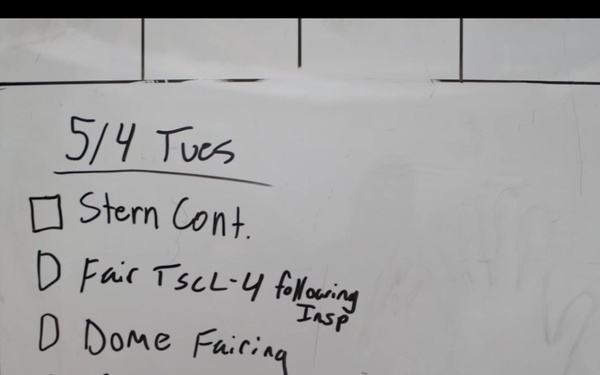 5/4 Tues
Stern Cont.
Fair TSCL-4 following
Insp
Dome Fairing